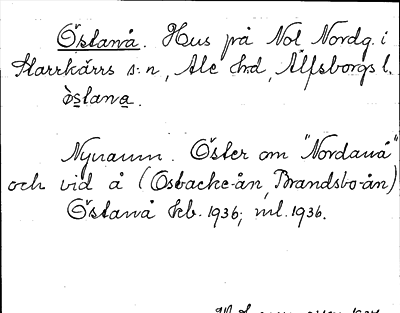 Östanå. Hus på Nol Nordg. i
Starrkärrs s:n, Ale hd, Älfsborgs l.
ö̀stana.
Nynamn. Öster om "Nordanå"
och vid å (Osbacke-ån, Brandsbo-ån)
Östanå kb. 1936; ml. 1936.